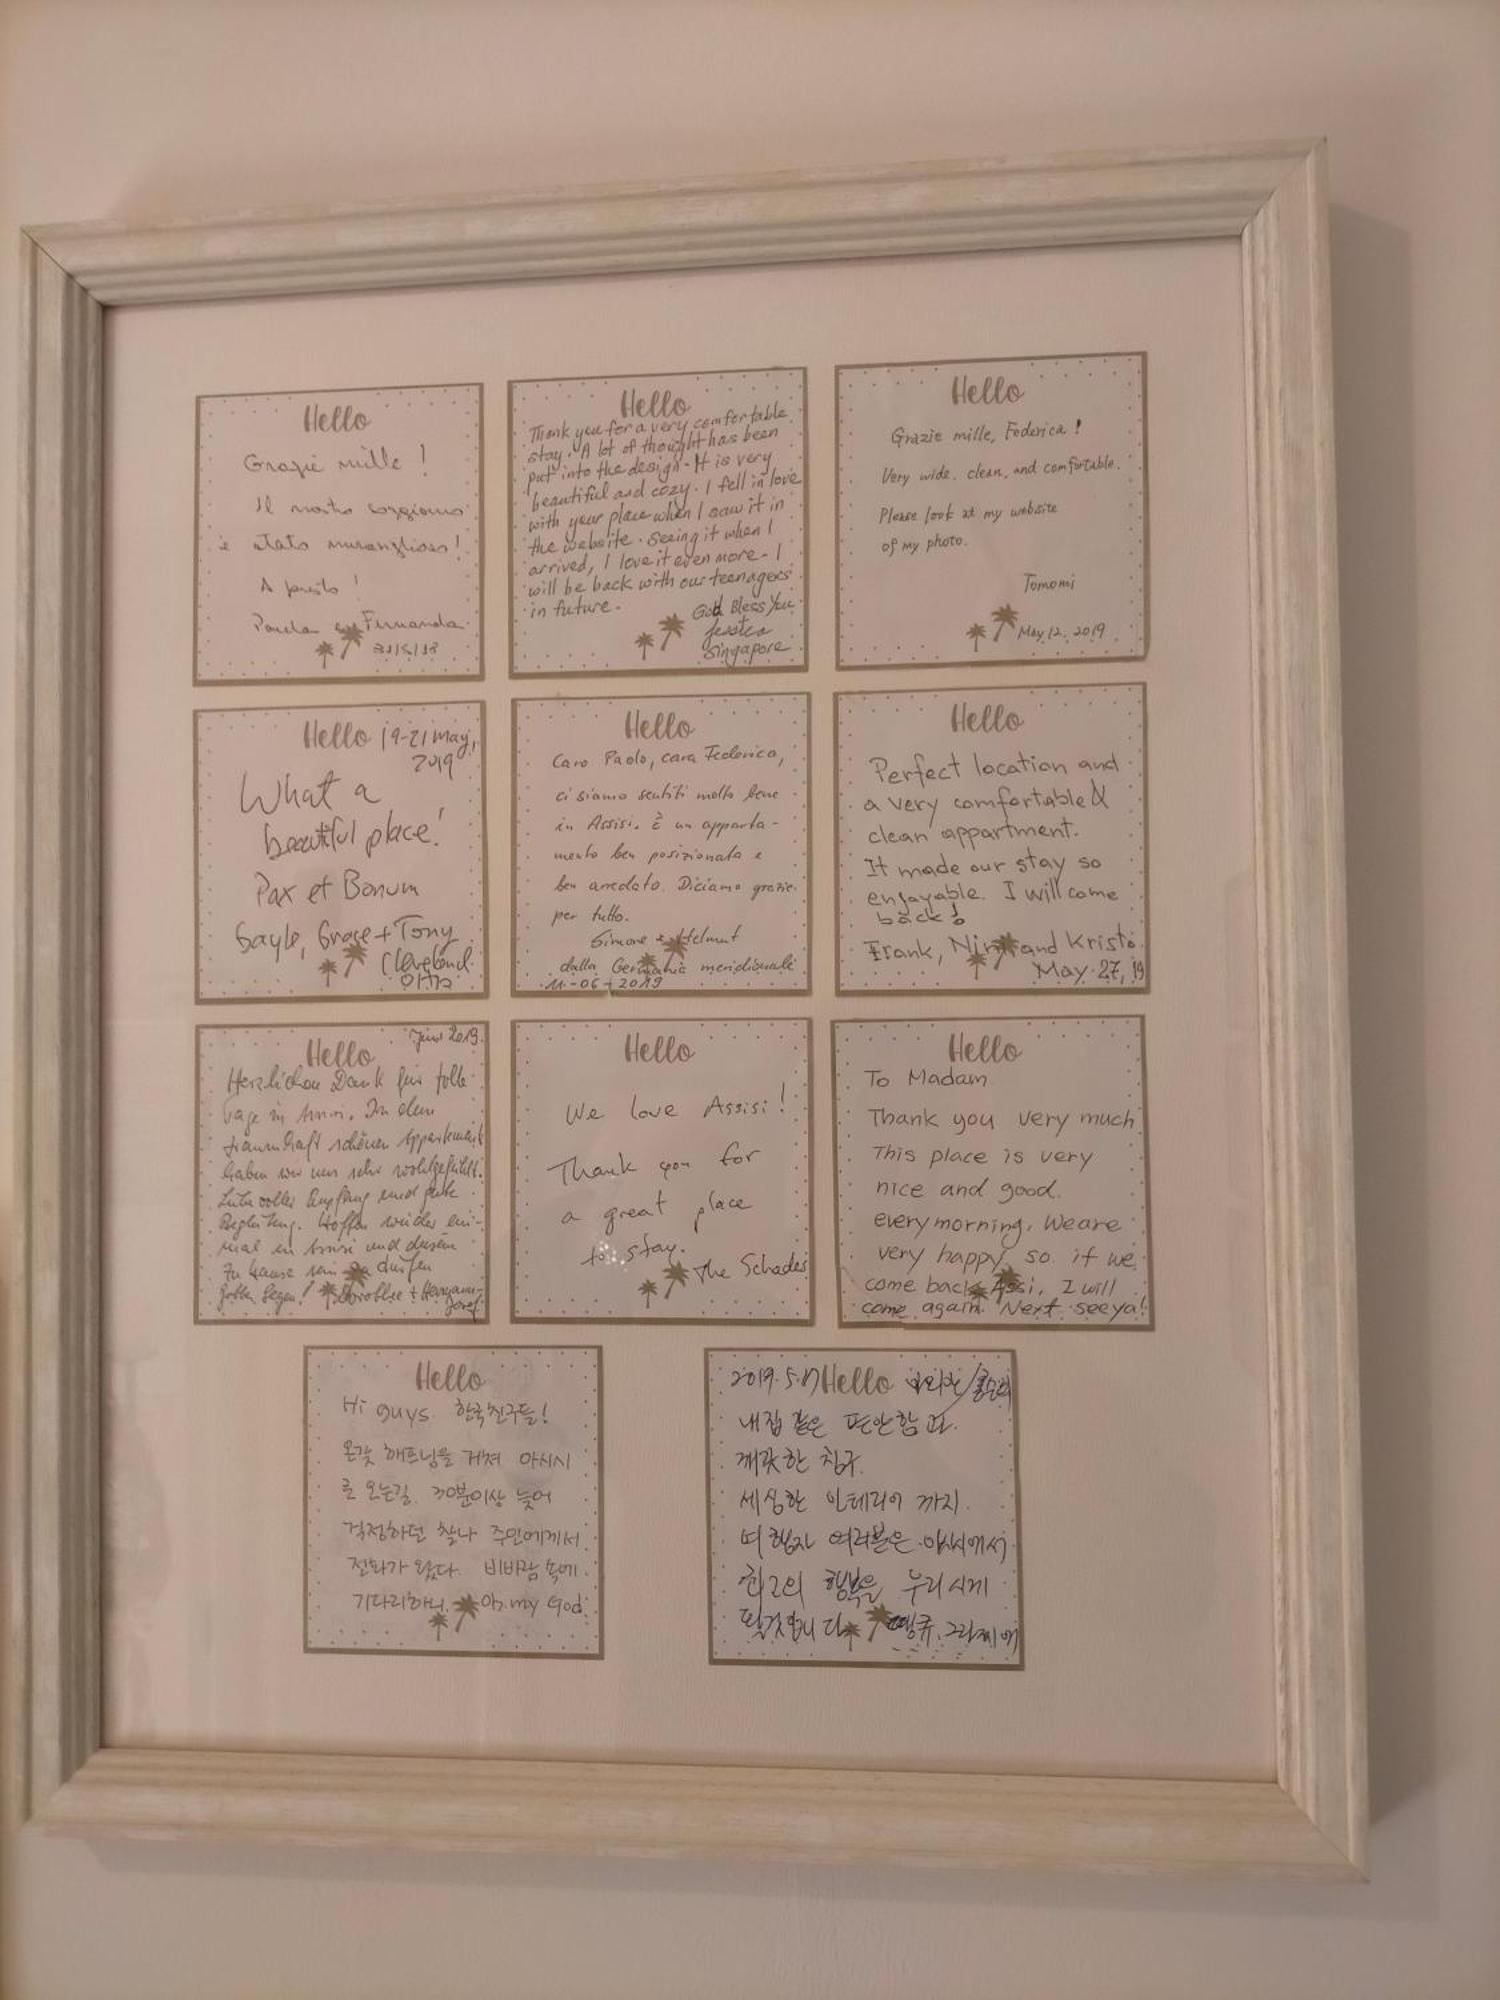 Hello
Grazie mille!
Il nostro soggiorno
è stato meraviglioso!
A presto!
Fernanda
Hello
Thank you for a very comfortable
stay. A lot of thought has been
put into the design. It is very
beautiful and cozy. I fell in love
with your place when I saw it in
the website. Seeing it when I
arrived, I love it even more. I
will be back with our teenagers
in future.
God Bless You
Jessica
Singapore
Hello
Grazie mille, Federica!
Very wide, clean, and comfortable.
Please look at my website
of my photo.
Tomomi
May, 12, 2019
Hello 19-21 May,
2019
What a
beautiful place!
Pax et Bonum
Gayle, Grace + Tony
Cleveland
Ohio
Hello
Caro Paolo, cara Federica,
ci siamo sentiti molto bene
in Assisi. È un apparta-
mento ben posizionato e
ben arredato. Diciamo grazie
per tutto.
Simone e Helmut
dalla Germania meridionale
11-06-2019
Hello
Perfect location and
a very comfortable &
clean appartment.
It made our stay so
enjoyable. I will come
back!
Frank, and Kristo
May. 27, 19
Juni 2019
Hello
Herzlichen Dank für tolle
Tage in Assisi. In dem
traumhaft schönen Appartment
haben wir uns sehr wohlgefühlt.
Liebevoller Empfang und gute
Begleitung. Hoffen wieder ein-
mal in Assisi und diesem
Zuhause sein zu dürfen
Gottes Segen! Dorothee + Hermann-
Josef
Hello
We love Assisi!
Thank you for
a great place
to stay.
The Schades
Hello
To Madam
Thank you very much
This place is very
nice and good.
every morning, We are
very happy so if we
come back Assi, I will
come again. Next see ya!
Hello
Hi guys. 한국친구들!
온갖 해프닝을 거쳐 아시시
로 오는길. 30분이상 늦어
걱정하던 찰나 주인에게서
전화가 왔다. 비바람 속에
기다리하니. Oh my God
2019.5.17 Hello
내집 같은 편안함과
깨끗한 침구
세심한 인테리어 까지
여행자 여러분은 아시시에서
최고의 행복을 누리시게
될것입니다 땡큐, 그라찌에